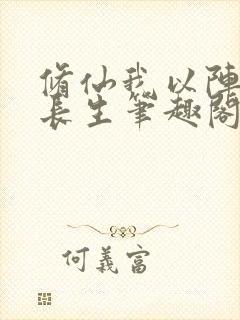 脩仙我以陣
長生筆趣閣
何義富